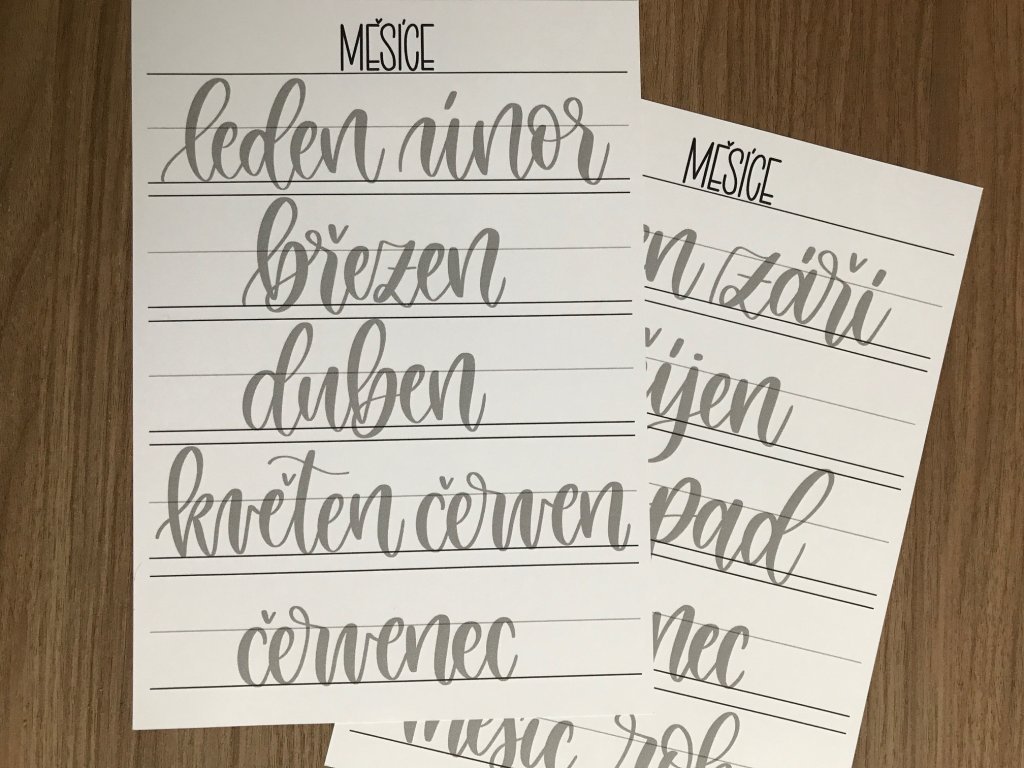 MĚSÍCE
leden únor
březen
duben
květen červen
červenec
MĚSÍCE
září
měsíc rok